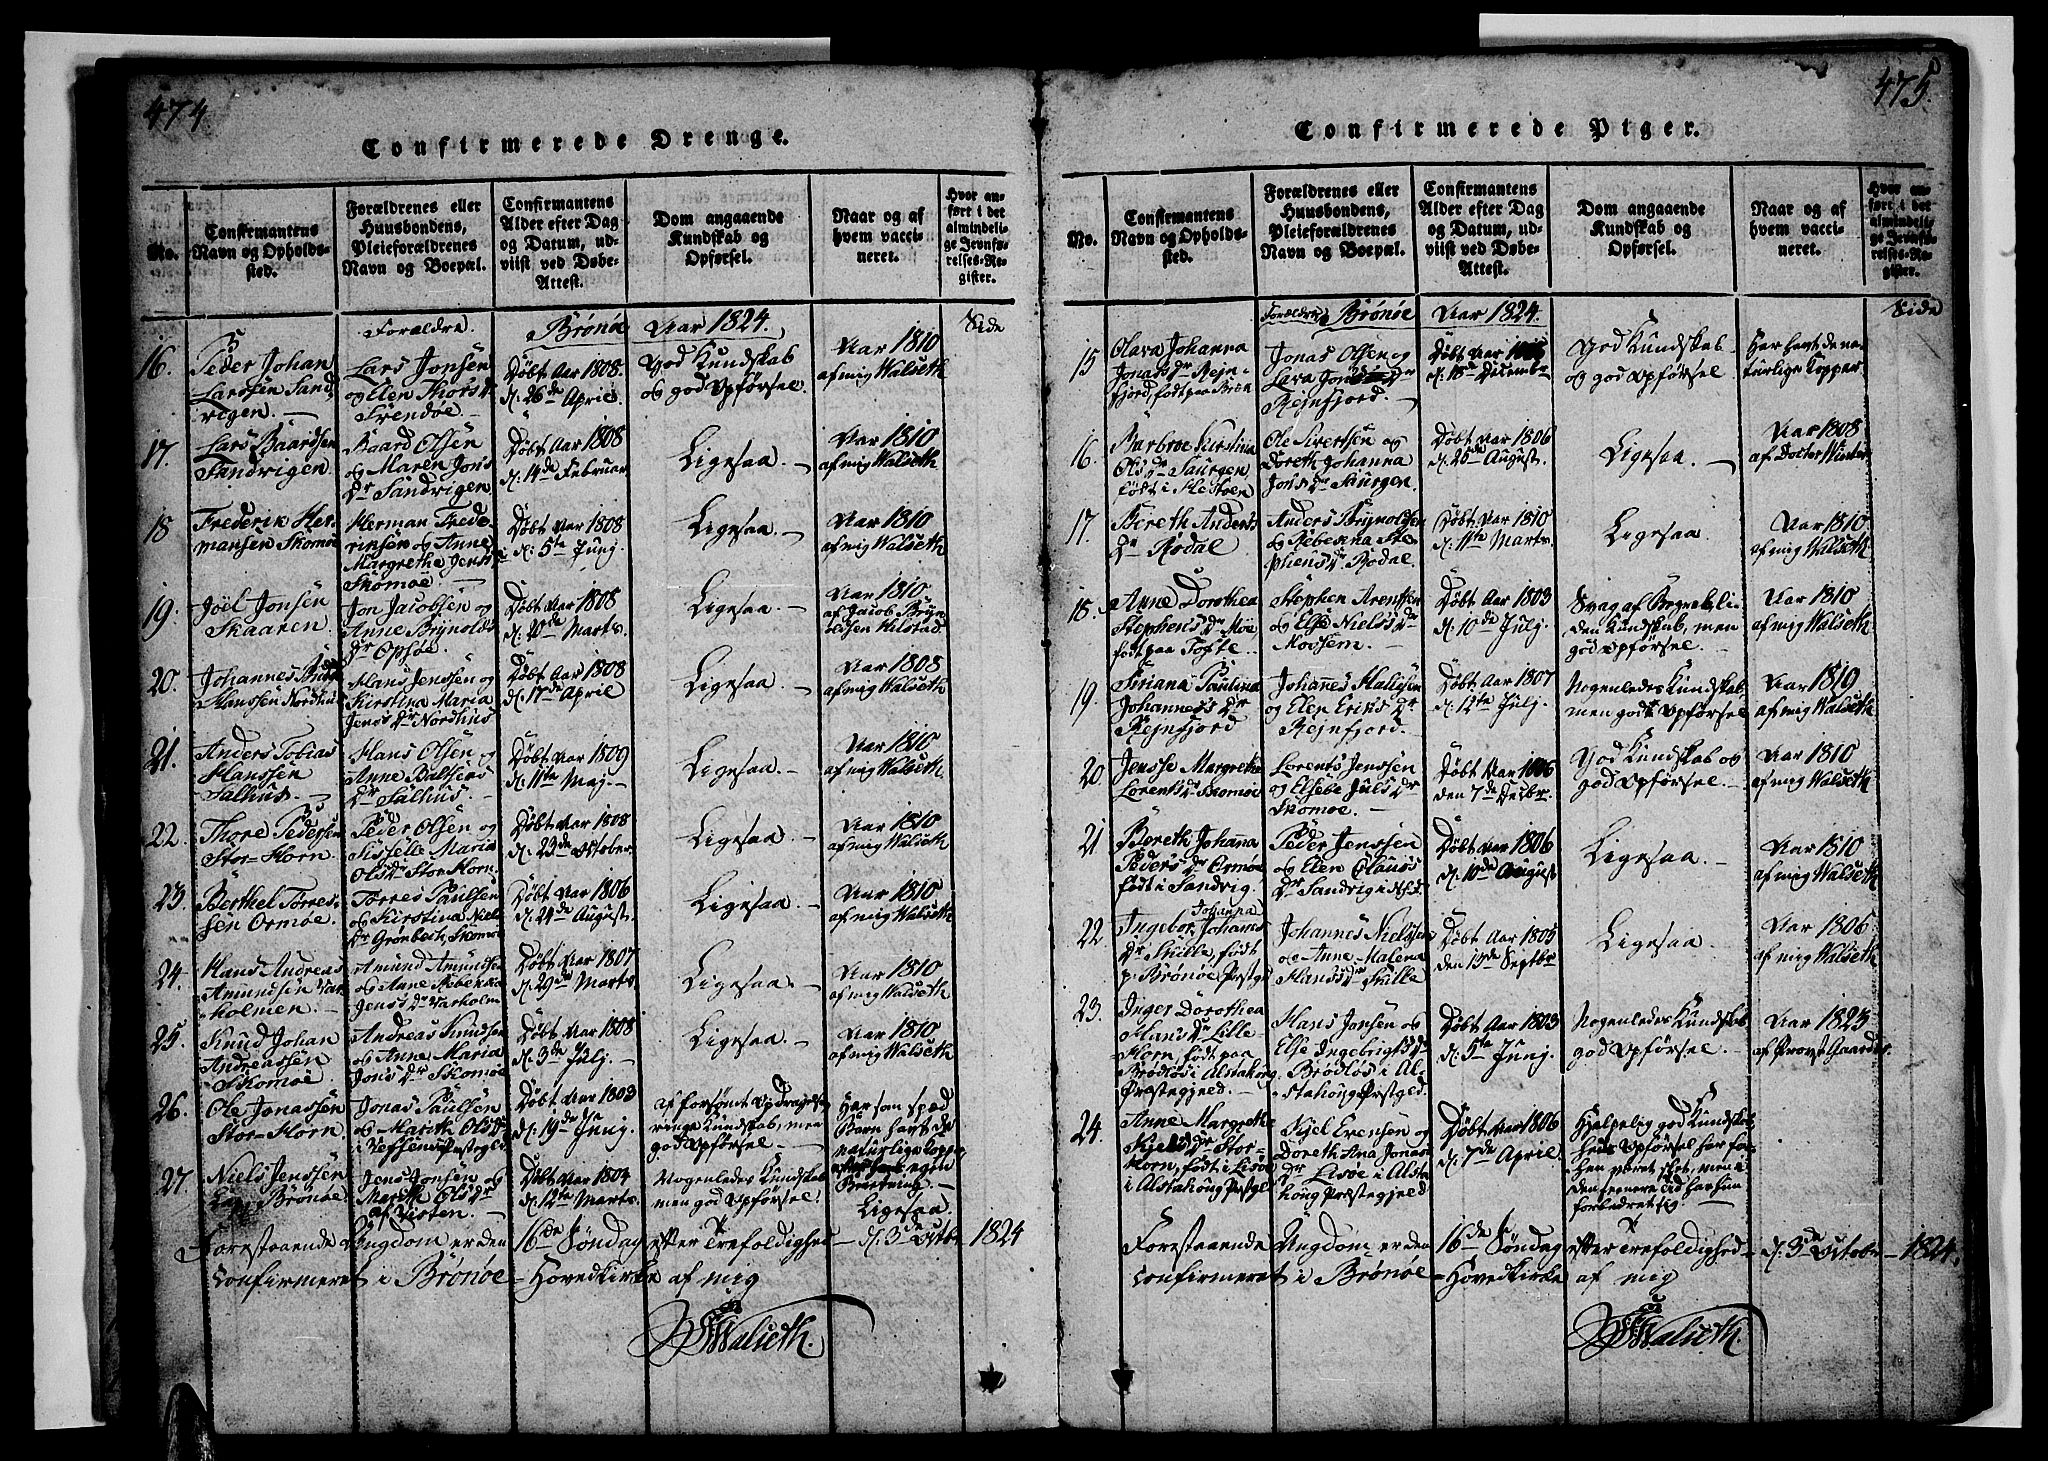 474.
Confirmerede Drenge.
No.
Confirmantens
Navn og Opholds-
sted.
Forældrenes eller
Huusbondens,
Pleieforældrenes
Navn og Boepæl.
Confirmantens
Alder efter Dag
og Datum, ud-
viist ved Døbe-
Attest.
Dom angaaende
Kundskab og
Opførsel.
Naar og af
hvem vacci-
neret.
Hvor an-
ført i det
almindeli-
ge Jevnfø-
relses-Re-
gister.
Forældre. Brönöe Aar 1824. Side
16.
Peder Johan
Larssen Sand
vigen.
Lars Jonsen
og Elen Thors Dr
Svendøe.
Döbt Aar 1808.
d: 26de April.
God Kundskab
og god Opförsel.
Aar 1810
af mig Walseth
17.
Lars Baardsen
Sandvigen
Baard Olsen
og Maren Jons
Dr Sandvigen
Döbt Aar 1808
d: 14de Februar
Ligesaa.
Aar 1810
af mig Walseth
18
Frederik Her-
mansen Skomøe
Herman Frede-
riksen og Anne
Margrethe Jens Dr
Skomøe
Döbt Aar 1808
d: 5te Junj.
Ligesaa.
Aar 1810
af mig Walseth
19.
Joel Jonsen
Skaaren.
Jon Jacobsen og
Anne Brynolds
Dr Opsöe.
Döbt Aar 1808
d: 20de Marts.
Ligesaa.
Aar 1810
af Jacob Bryn
oldsen Hilstad.
20.
Johannes
Hanssen Nordhus
Hans Jenssen og
Kirstina Maria
Jens Dr Nordhus
Döbt Aar 1808
d: 17de April
Ligesaa.
Aar 1808
af mig Walseth
21.
Anders Tobias
Hanssen
Salhus.
Hans Olsen og
Anne Baltsers
Dr Salhus.
Döbt Aar 1809
d: 11te Maj.
Ligesaa.
Aar 1810
af mig Walseth.
22.
Thore Pedersen
Stor-Horn.
Peder Olsen og
Sisselle Maria
Ols Dr Stor Horn.
Döbt Aar 1808
d: 23de October.
Ligesaa.
Aar 1810
af mig Walseth
23.
Berthel Torres-
sen Ormöe.
Torres Paulsen
og Kirstina Niels
Dr Grönbech, Skomöe
Döbt Aar 1806
d: 24de August.
Ligesaa.
Aar 1810
af mig Walseth
24.
Hans Andreas
Amundsen Var-
holmen.
Amund Amundsen
og Anne Rebekka
Jens Dr Varholm
Döbt Aar 1807
d: 29de Marts.
Ligesaa.
Aar 1810
af mig Walseth
25.
Knud Johan
Andreassen
Skomøe
Andreas Knudsen
og Anne Maria
Jons Dr Skomöe
Döbt Aar 1808
d: 3de Julj.
Ligesaa
Aar 1810
af mig Walseth
26.
Ole Jonassen
Stor-Horn.
Jonas Paulsen
og Mareth Ols Dr
i Vefsens Præstegjeld
Döbt Aar 1803
d: 19de Junj.
af forsömt Opdragelse
ringe Kundskab, men
god Opförsel
Har som spæd
Barn havt de
naturlige Kopper
egen
Beretning.
27.
Niels Jenssen
Brönöe.
Jens Jonsen og
Mareth Ols Dr
af Visten.
Döbt Aar 1804
d: 12te Marts.
Nogenledes Kundskab
men god Opförsel.
Ligesaa.
Forestaaende Ungdom er den 16de Söndag efter Trefoldighed d: 3de Octbr 1824
confirmeret i Brönöe Hovedkirke af mig
Walseth.
475.
Confirmerede Piger.
No.
Confirmantens
Navn og Opholds-
sted.
Forældrenes eller
Huusbondens,
Pleieforældrenes
Navn og Boepæl.
Confirmantens
Alder efter Dag
og Datum, ud-
viist ved Døbe-
Attest.
Dom angaaende
Kundskab og
Opførsel.
Naar og af
hvem vacci-
neret.
Hvor an-
ført i det
almindeli-
ge Jevnfø-
relses-Re-
gister.
Forældre Brönöe Aar 1824. Side
15
Olava Johanna
Jonas Dr Rejn-
fjord, födt paa
Jonas Olsen og
Lava Dr
Rejnfjord.
Döbt Aar
d: 18de Decembr
God Kundskab
og god Opförsel.
Har havt de na-
turlige Kopper
16.
Barbroe Kirstina
Ols Dr Saurgen
födt i
Ole Sivertsen og
Doreth Johanna
Jons Dr Saurgen.
Döbt Aar 1806
d: 25de August.
Ligesaa.
Aar 1808
af Docter Winter
17.
Bereth Anders
Dr Rødal
Anders Brynoldsen
og Rebekka Ste-
phens Dr Rodal.
Döbt Aar 1810
d: 11te Marts.
Ligesaa
Aar 1810
af mig Walseth
18.
Anne Dorothea
Stephens Dr Moe
födt paa Tofte.
Stephen Arentsen
og Else Niels Dr
Mossem.
Döbt Aar 1803
d: 10de Julj
Svag af Begreb li-
den Kundskab, men
god Opförsel.
Aar 1810
af mig Walseth
19.
Siriana Paulina
Johannes Dr
Rejnfjord
Johannes
og Elen Eriks Dr
Rejnfjord.
Döbt Aar 1807
d: 12te Julj.
Nogenledes Kundskab
men god Opförsel
Aar 1810
af mig Walseth
20
Jensse Margrethe
Lorents Dr Skomöe
Lorents Jenssen
og Elsebe Juls Dr
Skomøe.
Döbt Aar 1806
den 7de Decbr.
God Kundskab og
god Opförsel.
Aar 1810
af mig Walseth
21
Bereth Johanna
Peders Dr Ormöe
födt i Sandvig.
Peder Jenssen
og Elen Claus
Dr Sandvig i
Döbt Aar 1806
d: 10de August
Ligesaa.
Aar 1810
af mig Walseth
22.
Johanna
Ingebor Johannes
Dr Skille, födt
p. Brönöe Præstgd
Johannes Nielssen
og Anne Malena
Hans Dr Skille
Döbt Aar 1805
den 13de Septbr
Ligesaa.
Aar 1806
af mig Walseth
23.
Inger Dorothea
Hans Dr Lille
Horn, födt paa
Brödlös i Alstahoug
Præstegjeld.
Hans Jonsen og
Else Ingebrigts Dr
Brödlös i Al-
stahoug Præstgld.
Döbt Aar 1803
d: 5te Junj.
Nogenledes Kundskab
god Opförsel.
Aar 1823
af Provst Gaarder.
24.
Anne Margrethe
Kjels Dr Stor-
Horn, födt i Lisöe
i Alstahoug Præstgd
Kjel Evensen og
Doreth Ana Jonas
Dr Lisöe i Alsta
houg Præstegjeld
Döbt Aar 1806
d: 7de April.
Hjelpelig god Kundskab
hen
Opførsel har for-
hen været slet, men i
den senere tid har hun
forbedret sig.
Forestaaende Ungdom er den 16de Söndag efter Trefoldighed d: 3de Octobr 1824.
confirmeret i Brönöe Hovedkirke af mig
Walseth.